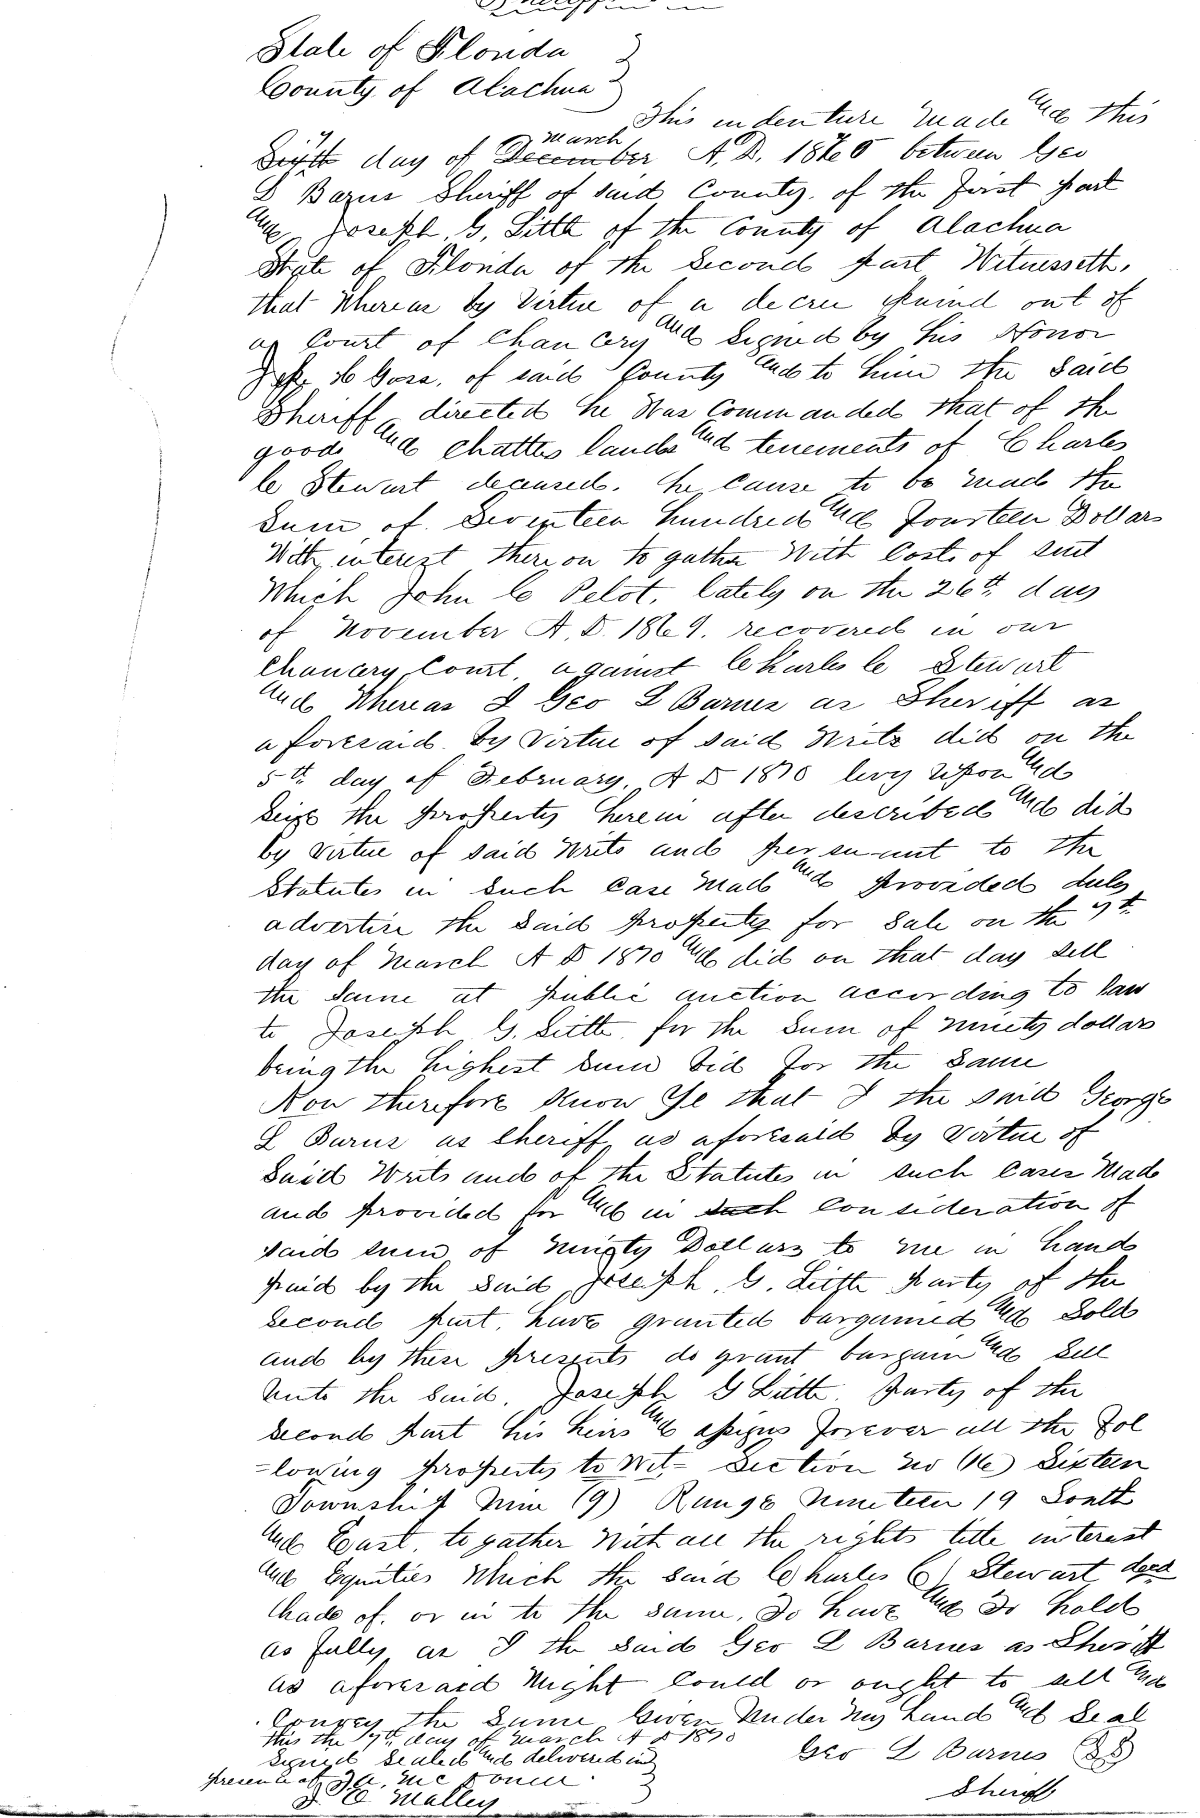 State of Florida
County of Alachua
This indenture made and this
Sixth day of December March A.D. 1870 between Geo
L Barnes Sheriff of said County, of the first part
and Joseph G. Little of the County of Alachua
State of Florida of the Second part Witnesseth,
that Whereas by Virtue of a decree out of
a Court of Chancery and Signed by his Honor
Goss, of said County and to him the Said
Sheriff directed he Was Commanded that of the
goods and chattles lands and tenements of Charles
C Stewart deceased, he Cause to be made the
Sum of Seventeen hundred and fourteen Dollars
With interest thereon to gather With Costs of suit
Which John C Pelot, lately on the 26th day
of November A.D. 1869. recovered in our
Chancery Court, against Charles C Stewart
and Whereas I Geo L Barnes as Sheriff as
aforesaid by Virtue of said Writs did on the
5th day of February, A D 1870 levy upon and
Seize the property herein after described and did
by virtue of said Writs and persuant to the
Statutes in Such Case Made and provided duly
advertise the Said property for Sale on the 7th
day of March A D 1870 and did on that day sell
the Same at public auction according to law
to Joseph G. Little for the Sum of Ninety dollars
being the highest Sum bid for the Same
Now therefore Know Ye that I the said George
L Barnes as Sheriff as aforesaid by Virtue of
Said Writs and of the Statutes in such Cases Made
and provided for and in such Consideration of
said sum of Ninety Dollars to me in hand
paid by the Said Joseph. G. Little party of the
Second part, have granted bargained and Sold
and by these presents do grant bargain and Sell
Unto the Said, Joseph G Little. Party of the
Second part his heirs and assigns forever all the fol
=lowing property to Wit- Section No (16) Sixteen
Township Nine (9) Range Nineteen 19 South
and East, to gather With all the rights title interest
and Equities Which the said Charles C Stewart decd
had of, or in to the same, To have and To hold
as fully as I the Said Geo L Barnes as Sheriff
as aforesaid Might Could or ought to sell and
Convey the Same Given Under My hand and Seal
this the 7th day of March A D 1870
Signed Sealed and delivered in
presence of
J C Malley
Geo L Barnes (LS)
Sheriff